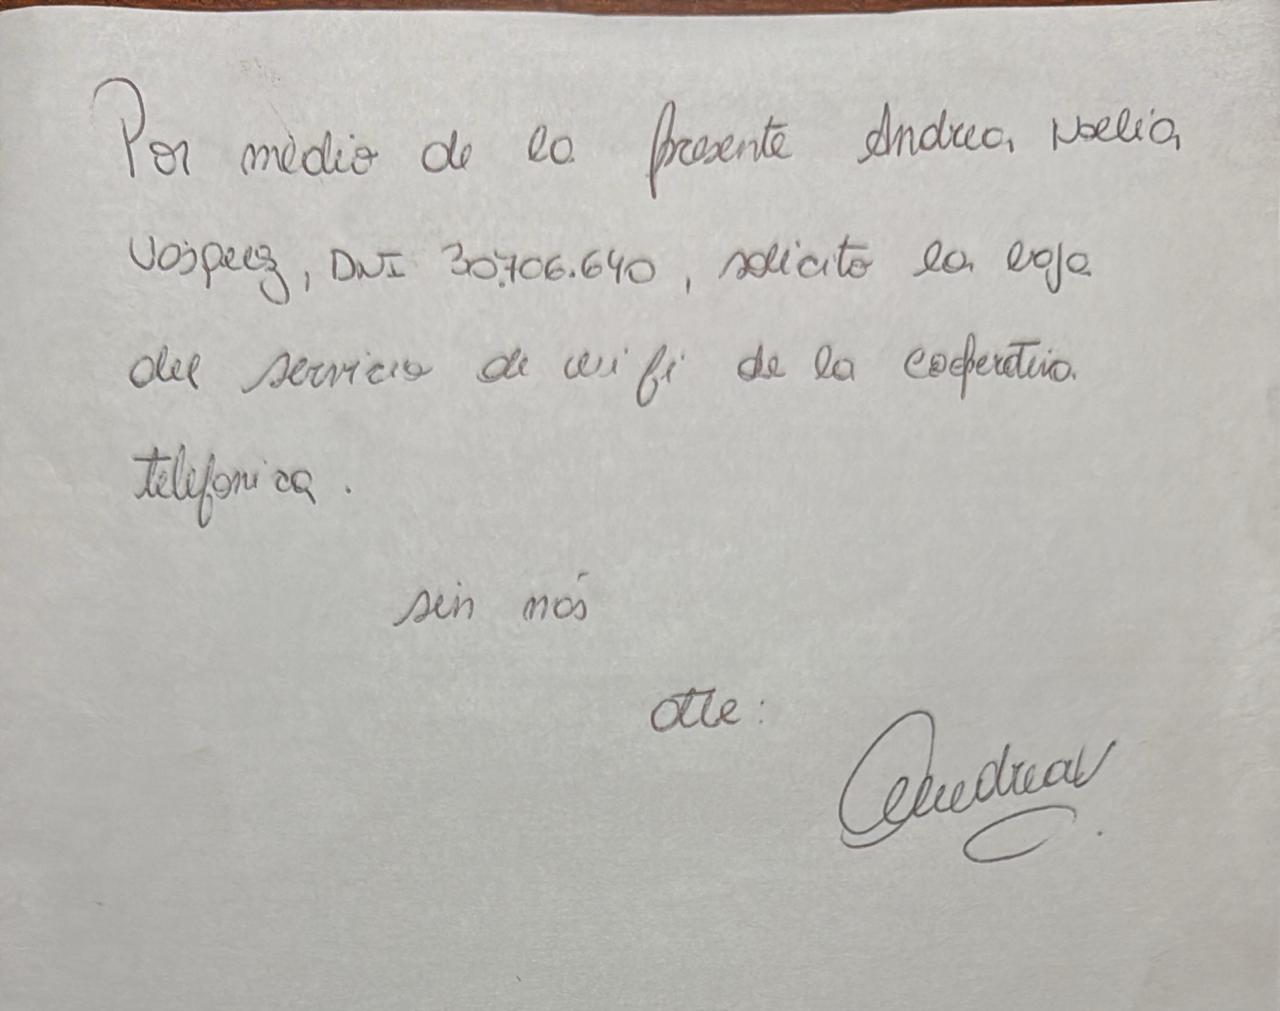 Por medio de la presente Andrea Noelia
DNI 30.706.640, solicito la baja
del servicio de wifi de la cooperativa
telefonica.
sin más
atte:
Andrea